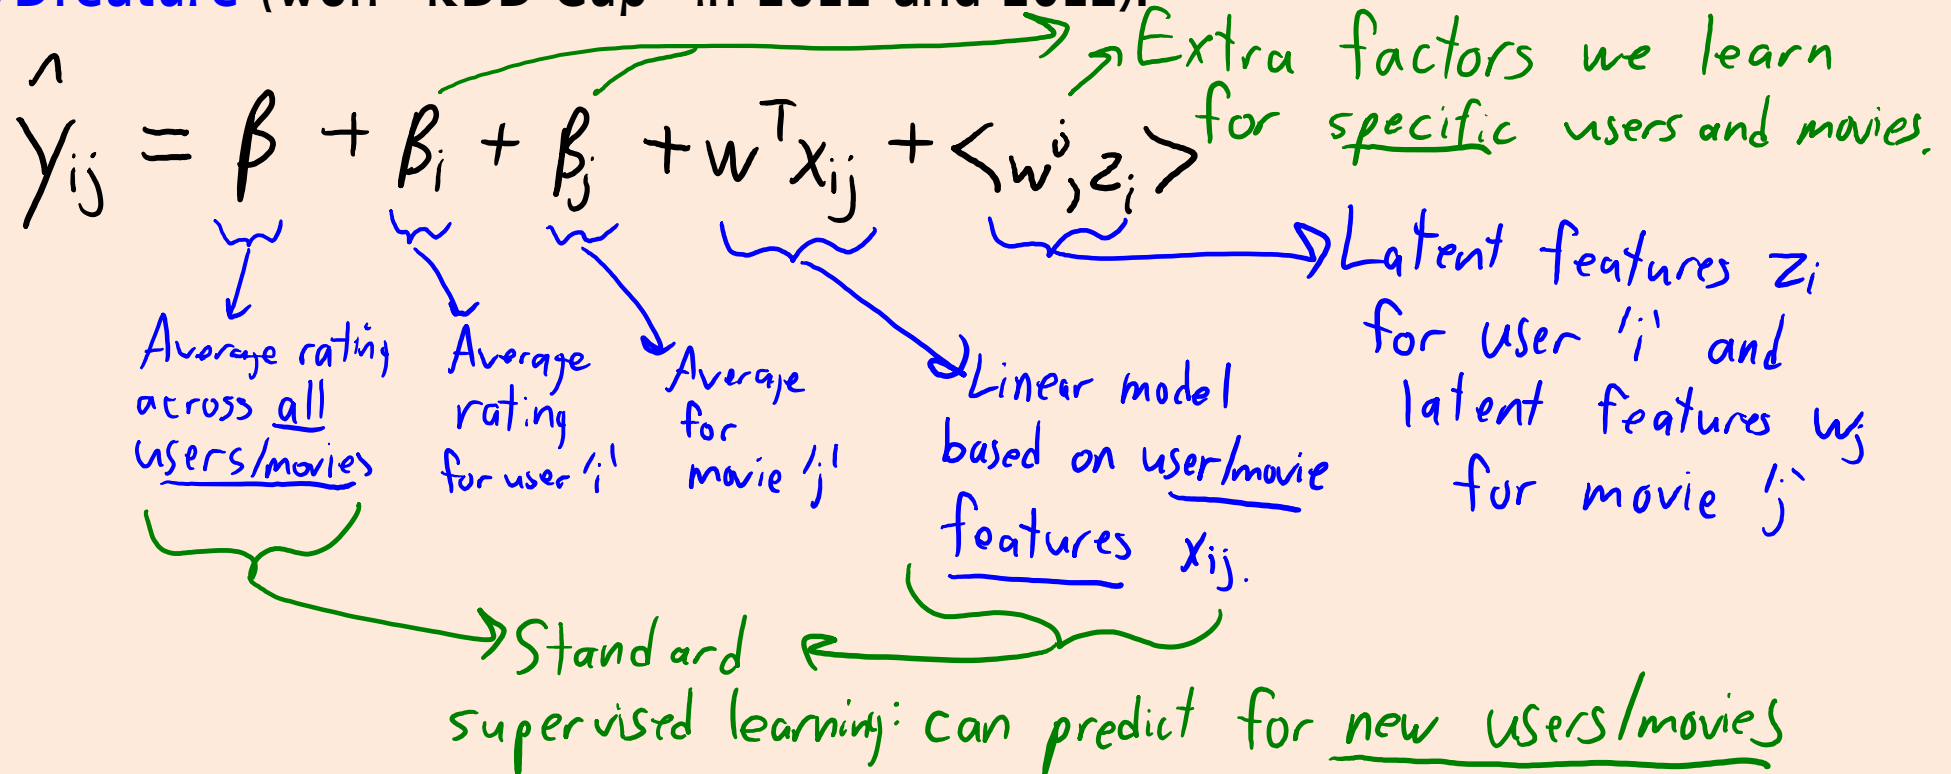 ŷij = β + βi + βj + wᵀxij + <wʲ, zi>
Extra factors we learn
for specific users and movies.
Average rating
across all
users/movies
Average
rating
for user 'i'
Average
for
movie 'j'
Linear model
based on user/movie
features xij.
Latent features zi
for user 'i' and
latent features wj
for movie 'j'
Standard
supervised learning: can predict for new users/movies